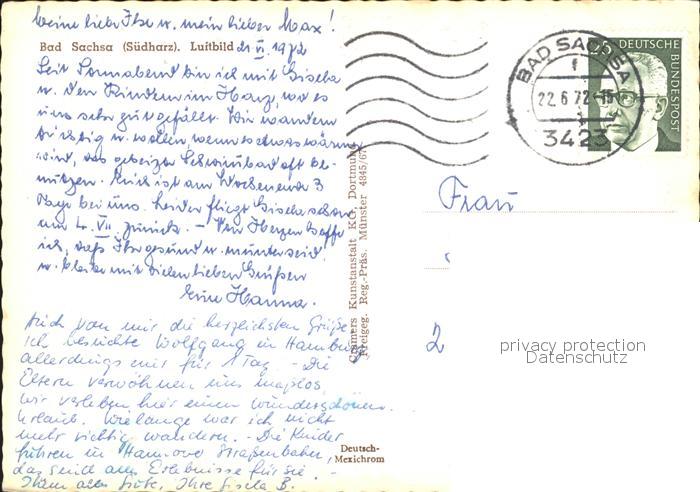 Meine liebe Ilse u. mein lieber Max!
Bad Sachsa (Südharz). Luftbild 21. VI. 1972
Seit Sonnabend bin ich mit Gisela
u. den Kindern im Harz, wo es
uns sehr gut gefällt. Wir wandern
tüchtig u. wollen, wenn es etwas wärmer
wird, das geheizte Schwimmbad oft be-
nutzen. Erich ist am Wochenende 3
Tage bei uns. Leider fliegt Gisela schon
am 4. VII. zurück. – Von Herzen hoffe
ich, daß Ihr gesund u. munter seid
u. bleibe mit vielen lieben Grüßen
Eure Hanna.
Auch von mir die herzlichsten Grüße
Ich besuchte Wolfgang in Hamburg
allerdings nur für 1 Tag. – Die
Eltern verwöhnen uns maßlos
wir verleben hier einen wunderschönen
Urlaub. Wie lange war ich nicht
mehr richtig wandern. – Die Kinder
führen in Hannover Straßenbahn,
das sind am Erlebnisse für sie.
Ihnen alles Gute, Ihre Gisela B.
Cramers Kunstanstalt KG, Dortmund
Freigeg. Reg.-Präs. Münster 4845/67
Deutsch-
Mexichrom
BAD SACHSA
1
22.6.72-15
3423
25 DEUTSCHE
BUNDESPOST
Frau
2
privacy protection
Datenschutz